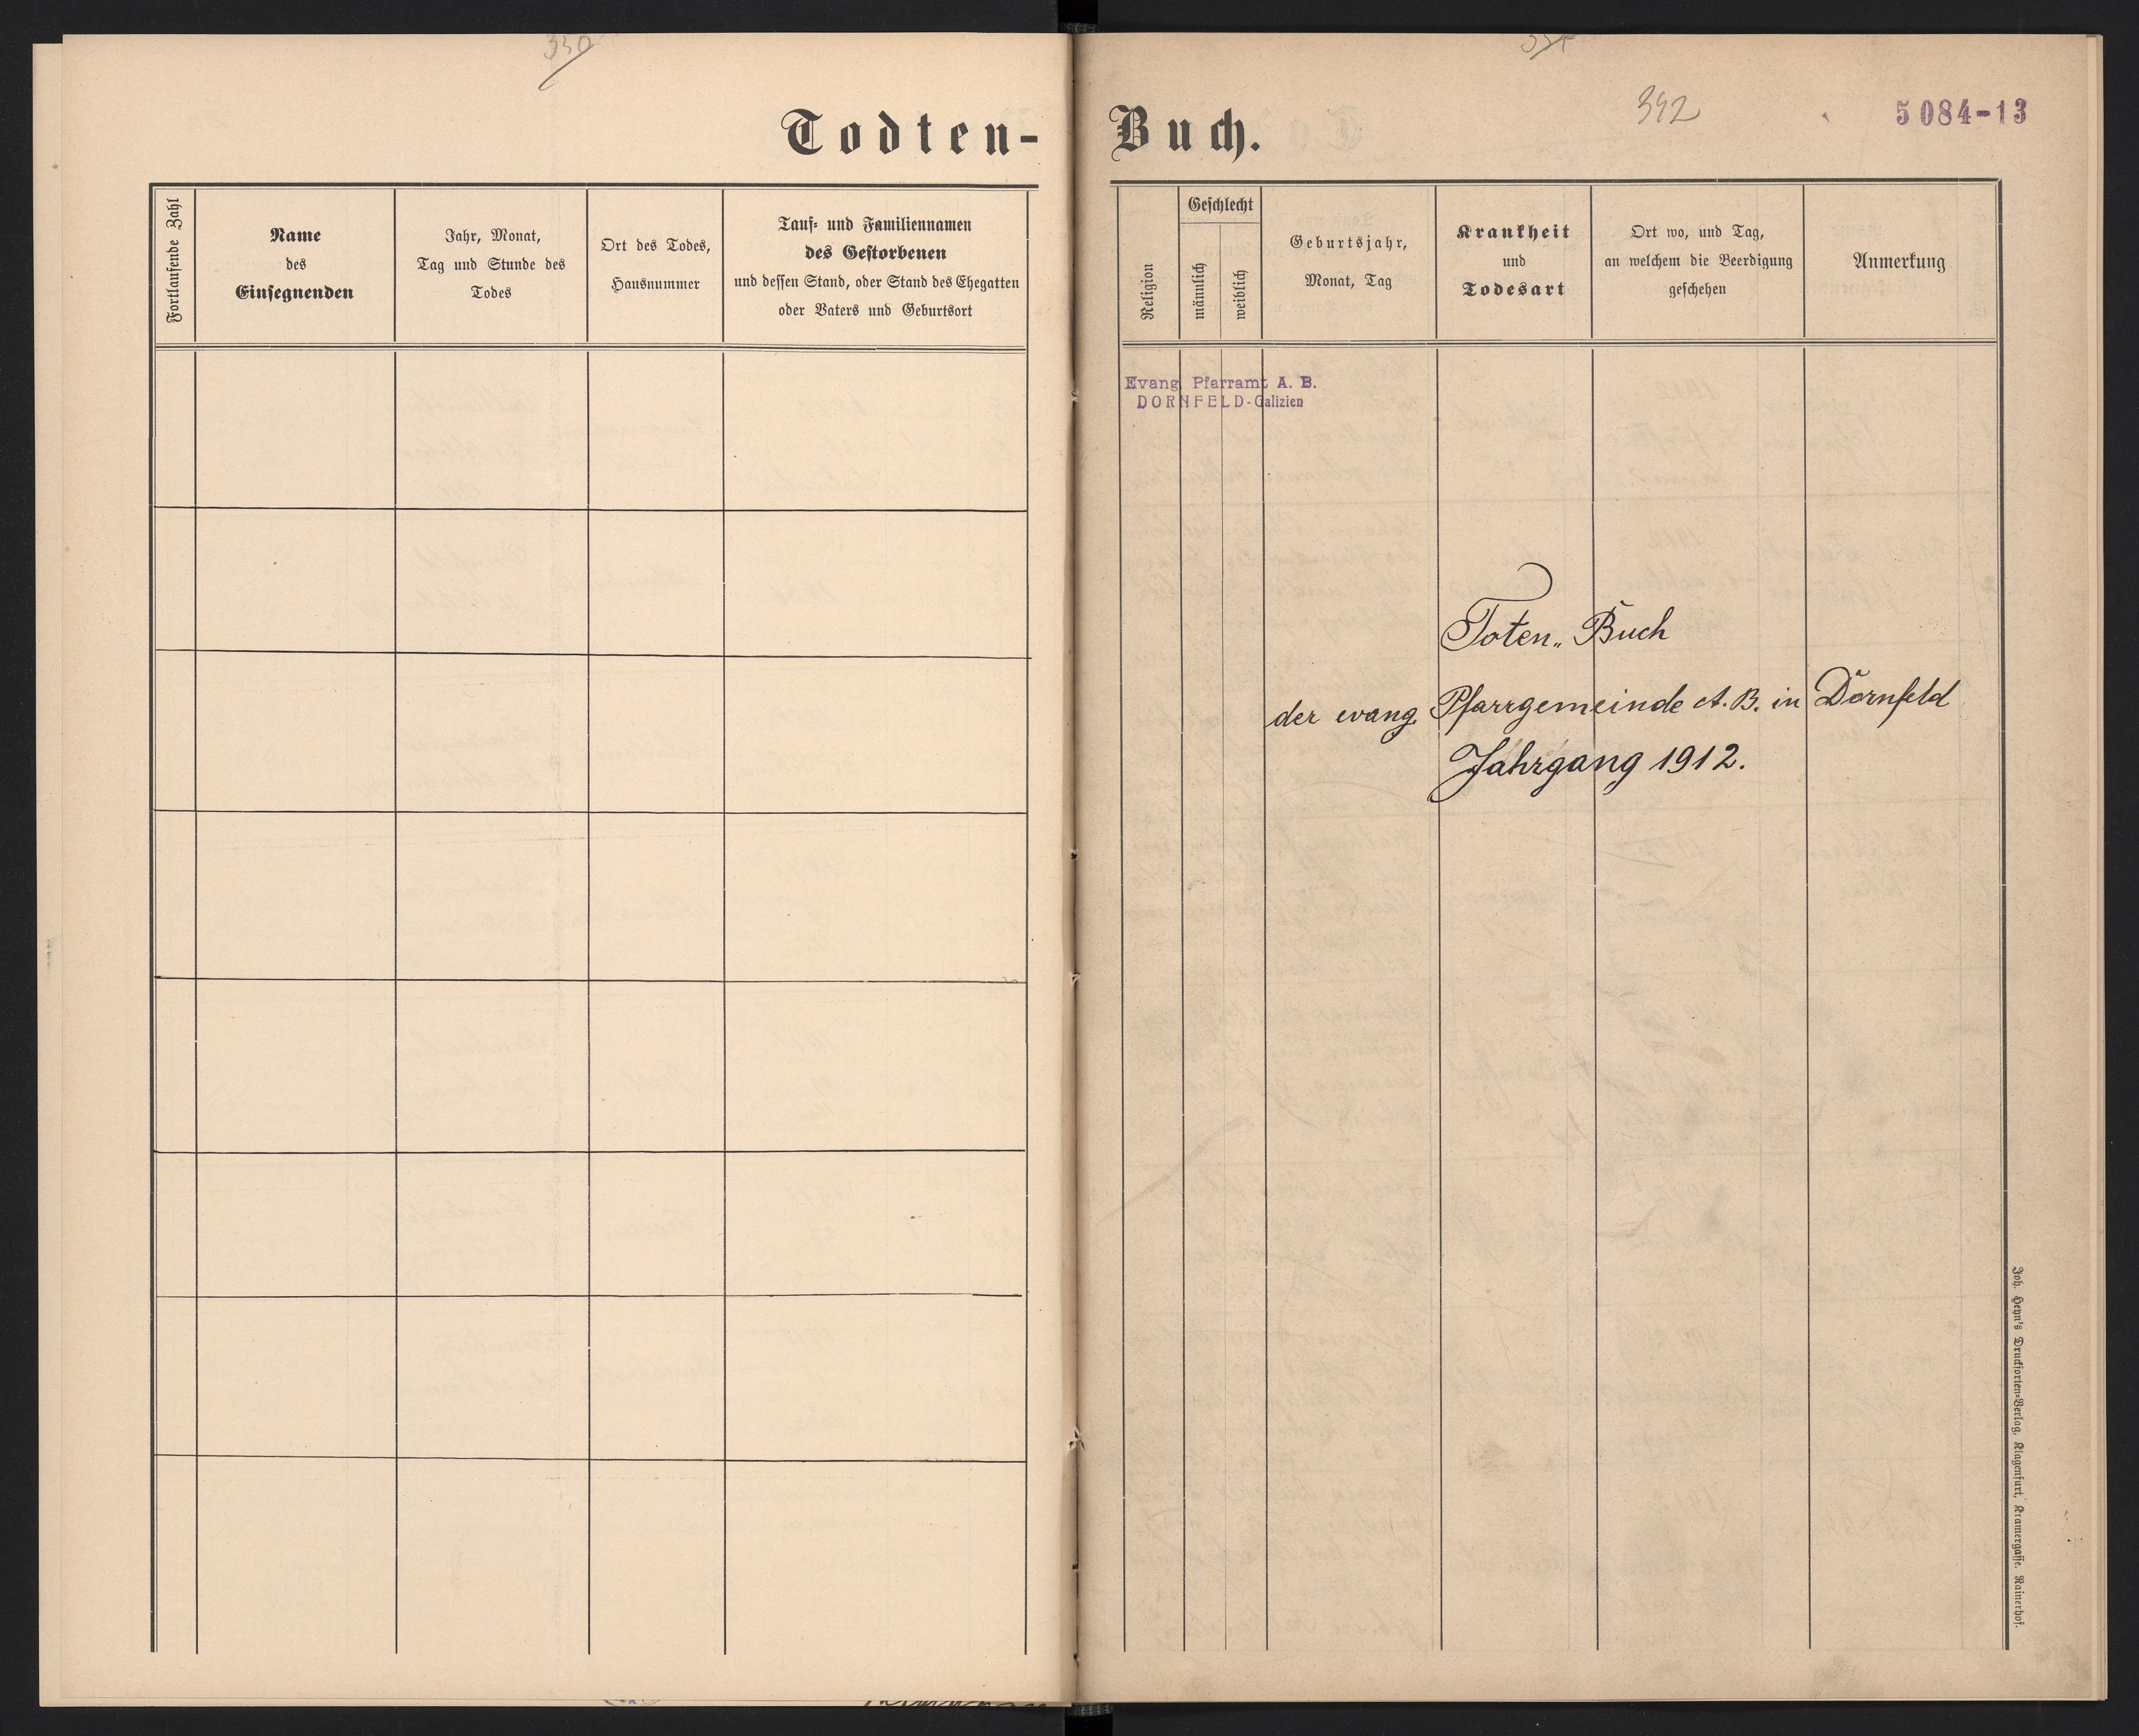 330
Todten-
Fortlaufende Zahl
Name
des
Einsegnenden
Jahr, Monat,
Tag und Stunde des
Todes
Ort des Todes,
Hausnummer
Tauf- und Familiennamen
des Gestorbenen
und dessen Stand, oder Stand des Ehegatten
oder Vaters und Geburtsort
392
5084-13
Buch.
Religion
Geschlecht
männlich
weiblich
Geburtsjahr,
Monat, Tag
Krankheit
und
Todesart
Ort wo, und Tag,
an welchem die Beerdigung
geschehen
Anmerkung
Evang. Pfarramt A. B.
DORNFELD-Galizien
Toten„ Buch
der evang. Pfarrgemeinde A. B. in Dornfeld
Jahrgang 1912.
Joh. Heyn's Drucksorten-Verlag, Klagenfurt, Kramergasse. Rainerhof.